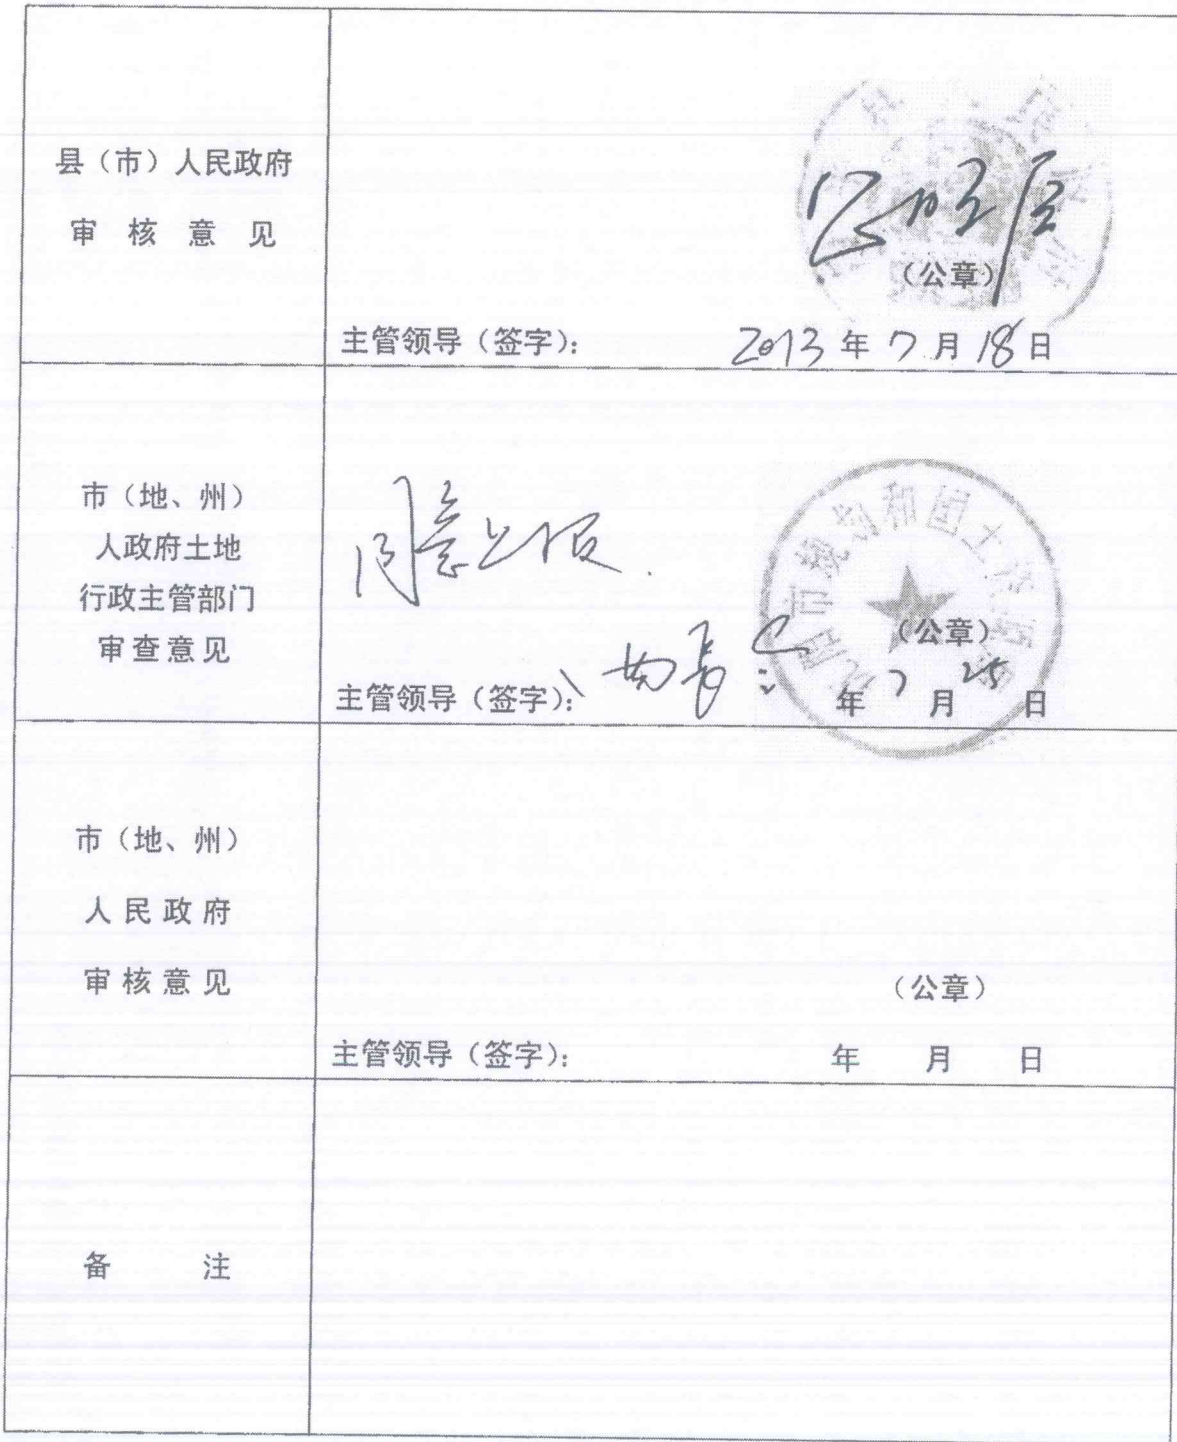 县（市）人民政府
审 核 意 见
（公章）
主管领导（签字）： 2013年7月18日
市（地、州）
人政府土地
行政主管部门
审查意见
同意上报.
市城乡和国土资源
（公章）
主管领导（签字）： 年7月25日
市（地、州）
人民政府
审核意见
（公章）
主管领导（签字）： 年 月 日
备 注